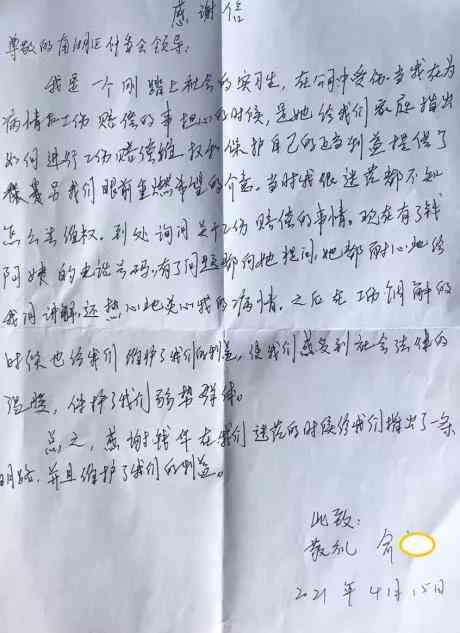 感谢信
尊敬的南湖区仲委会领导:
我是一个刚踏上社会的实习生,在公司中受伤。当我在为
病情和工伤赔偿的事担心的时候,是她给我们家庭指出
如何进行工伤赔偿维权和保护自己的正当利益提供了
我们眼前重燃希望的介意。当时我很迷茫都不知
怎么去维权。到处询问关于工伤赔偿的事情。现在有了钱
阿姨的电话号码,有了问题都向她提问,她都耐心地给
我们讲解,还热心地关心我的病情。之后在工伤调解的
时候也给我们维护了我们的利益,使我们感受到社会法律的
温暖,保护了我们弱势群体。
总之,感谢钱年在我们迷茫的时候给我们指出了一条
明路,并且维护了我们的利益。
此致:
敬礼 俞
2021年4月15日